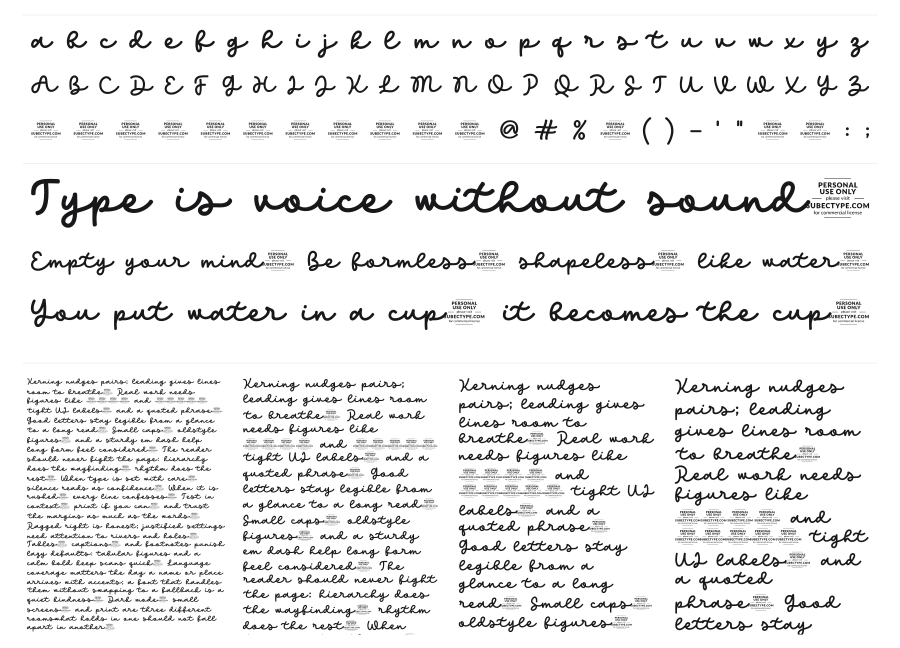 a b c d e f g h i j k l m n o p q r s t u v w x y z
A B C D E F G H I J K L M N O P Q R S T U V W X Y Z
@ # % ( ) - ' " : ;
Type is voice without sound
PERSONAL
USE ONLY
please visit
SUBECTYPE.COM
for commercial license
Empty your mind Be formless shapeless like water
You put water in a cup it becomes the cup
Kerning nudges pairs; leading gives lines
room to breathe Real work needs
figures like and
tight UI labels and a quoted phrase
Good letters stay legible from a glance
to a long read Small caps oldstyle
figures and a sturdy em dash help
long form feel considered The reader
should never fight the page: hierarchy
does the wayfinding rhythm does the
rest When type is set with care
silence reads as confidence When it is
rushed every line confesses Test in
context print if you can and trust
the margins as much as the words
Ragged right is honest; justified settings
need attention to rivers and holes
Tables captions and footnotes punish
lazy defaults: tabular figures and a
calm bold keep scans quick Language
coverage matters the day a name or place
arrives with accents; a font that handles
them without snapping to a fallback is a
quiet kindness Dark mode small
screens and print are three different
rooms what holds in one should not fall
apart in another
Kerning nudges pairs;
leading gives lines room
to breathe Real work
needs figures like
and
tight UI labels and a
quoted phrase Good
letters stay legible from
a glance to a long read
Small caps oldstyle
figures and a sturdy
em dash help long form
feel considered The
reader should never fight
the page: hierarchy does
the wayfinding rhythm
does the rest When
Kerning nudges
pairs; leading gives
lines room to
breathe Real work
needs figures like
and
tight UI
labels and a
quoted phrase
Good letters stay
legible from a
glance to a long
read Small caps
oldstyle figures
Kerning nudges
pairs; leading
gives lines room
to breathe
Real work needs
figures like
and
tight
UI labels and
a quoted
phrase Good
letters stay